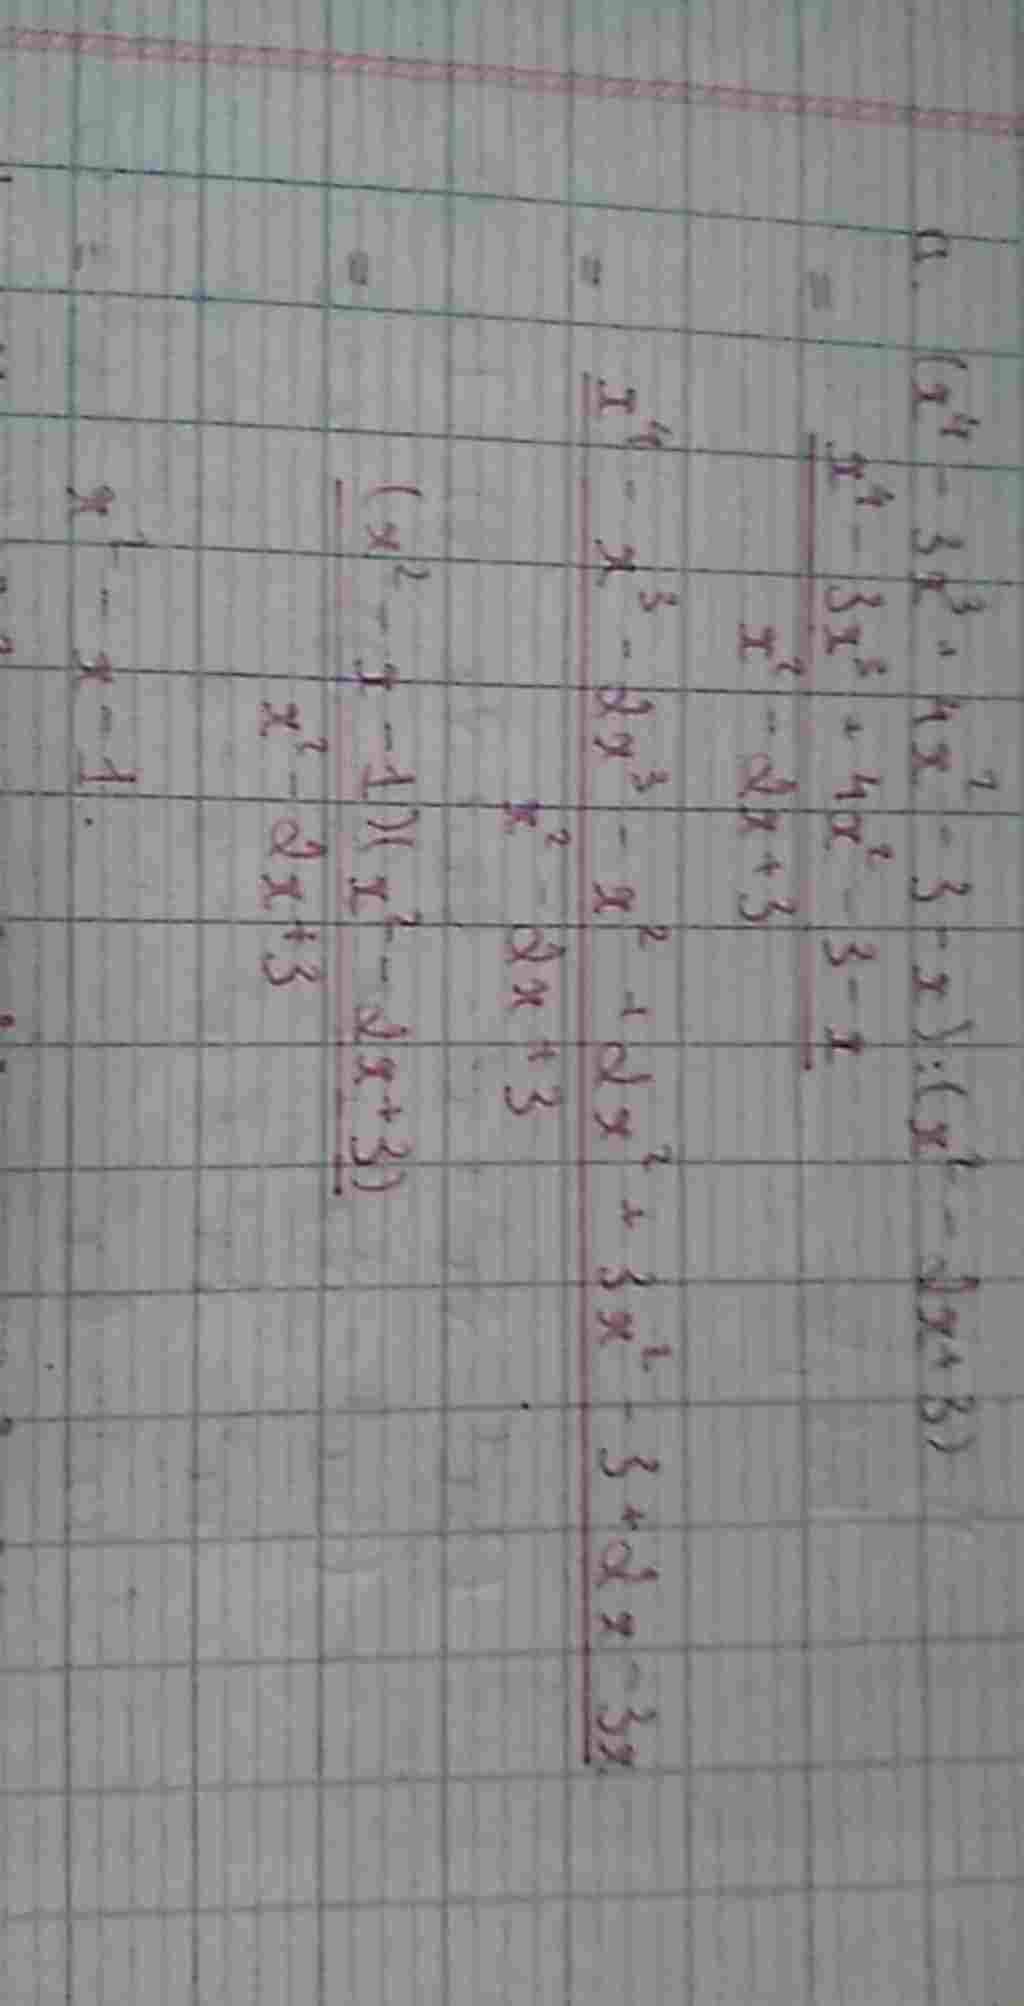 a. (x⁴ - 3x³ + 4x² - 3 - x) : (x² - 2x + 3)
= x⁴ - 3x³ + 4x² - 3 - x
x² - 2x + 3
= x⁴ - x³ - 2x³ - x² + 2x² + 3x² - 3 + 2x - 3x
x² - 2x + 3
= (x² - x - 1)(x² - 2x + 3)
x² - 2x + 3
= x² - x - 1.